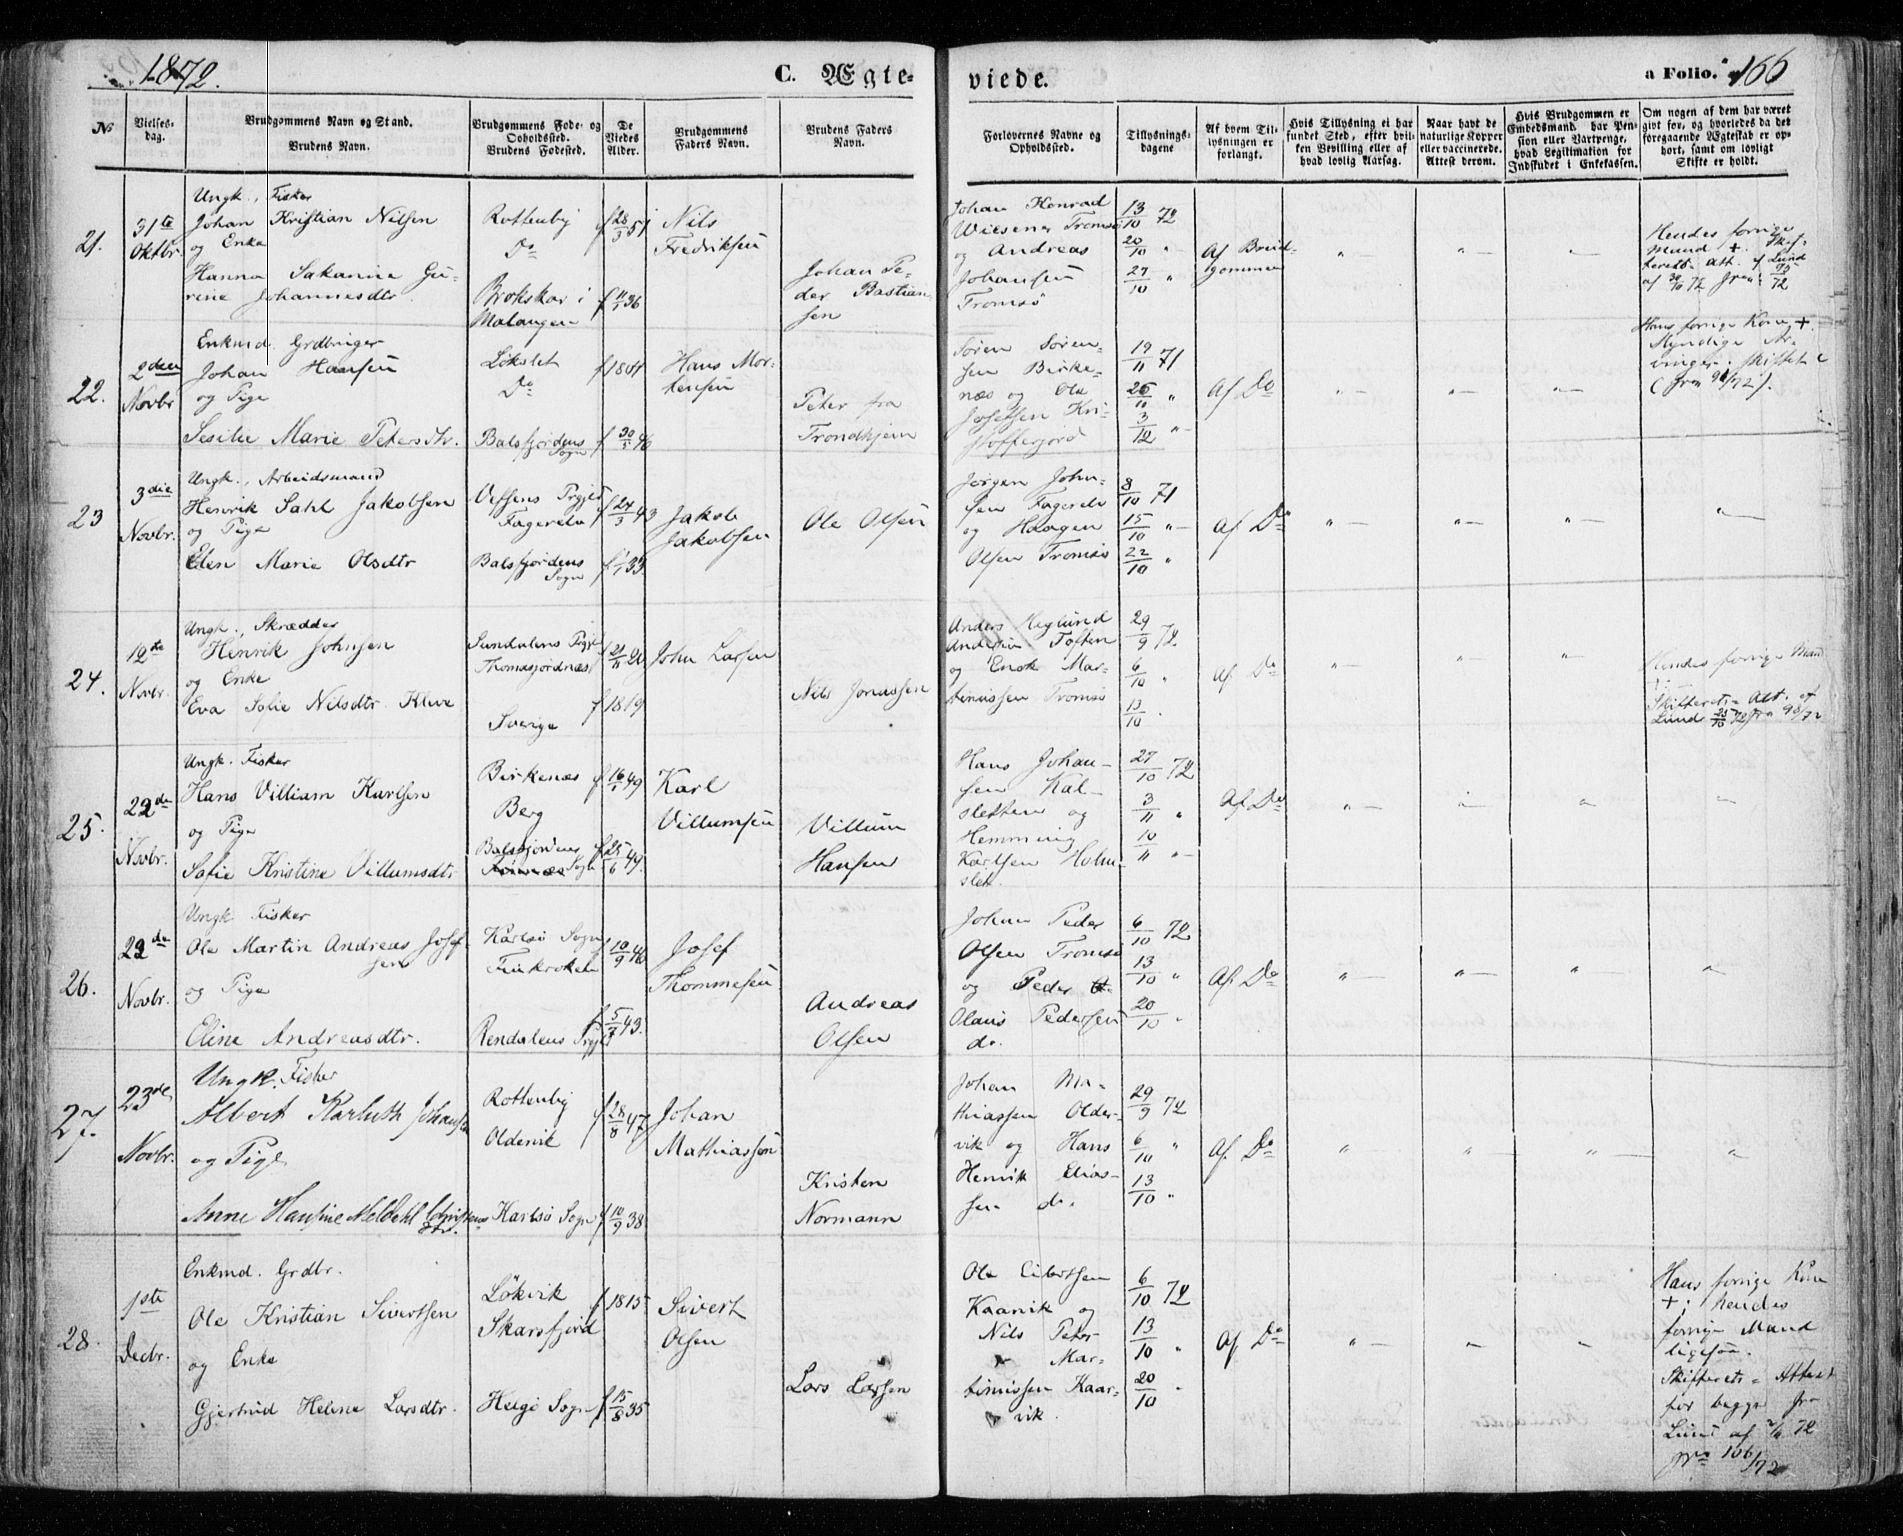 1872.
C. Ægte-
viede.
a Folio. 166
№
Vielses-
dag.
Brudgommens Navn og Stand.
Brudens Navn.
Brudgommens Føde- og
Opholdssted.
Brudens Fødested.
De
Viedes
Alder.
Brudgommens
Faders Navn.
Brudens Faders
Navn.
Forlovernes Navne og
Opholdssted.
Tillysnings-
dagene
Af hvem Til-
lysningen er
forlangt.
Hvis Tillysning ei har
fundet Sted, efter hvil-
ken Bevilling eller af
hvad lovlig Aarsag.
Naar havt de
naturlige Kopper
eller vaccinerede.
Attest derom.
Hvis Brudgommen er
Embedsmand, har Pen-
sion eller Vartpenge,
hvad Legitimation for
Indskudet i Enkekassen.
Om nogen af dem har været
givt før, og hvorledes da det
foregaaende Ægteskab er op-
hørt, samt om lovligt
Skifte er holdt.
21.
31te
Oktbr.
Ungk., Fisker
Johan Kristian Nilsen
og Enke
Hanna Sakarine Gu-
rine Johannesdtr.
Rottenby
Do
Brokskar i
Malangen
f 28/3 51
f 11/1 36
Nils
Fredriksen
Johan Pe-
der Bastian-
sen
Johan Konrad
Wilsener Tromsø
og Andreas
Johansen
Tromsø
13/10 72
20/10 "
27/10 "
Af Brud-
gommen
Hendes forrige
Mand +. Skif-
terets Att. af Lund
af 30/9 72 Jrn 95/72
22.
2den
Novbr
Enkmd. Grdbruger
Johan Hansen
og Pige
Sesilie Marie Petersdtr.
Løkslet
Do
Balsfjordens
Sogn
f 1804
f 30/5 46
Hans Mor-
tensen
Peter fra
Trondhjem
Søren Søren-
sen Birke-
næs og Ole
Josefsen Kri-
stofferjord
19/11 71
26/11 "
3/12 "
Af Do
Hans forrige Kone +.
Myndige Ar-
vinger. Skiftet
(Jrn 98/72).
23
3die
Novbr.
Ungk., Arbeidsmand
Henrik Sahl Jakobsen
og Pige
Elen Marie Olsdtr
Vefsens Prgjld
Fagerelv
Balsfjordens
Sogn
f 27/3 43
f 1/1 33
Jakob
Jakobsen
Ole Olsen
Jørgen John-
sen Fagerelv
og Haagen
Olsen Tromsø
8/10 71
15/10 "
22/10 "
Af Do
24.
12te
Novbr.
Ungk., Skrædder
Henrik Johnsen
og Enke
Eva Sofie Nilsdtr. Kleve
Sundalens Prgjld
Thomasjordnæs
Sverige
f 21/11 20
f 1819
John Larsen
Nils Jonassen
Anders Heglund
Andersen Toften
og Enok Mar-
tinussen Tromsø
29/9 72
6/10 "
13/10 "
Af Do
Hendes forrige Mand
Skifterets Att. af
Lund 23/10 72 Jrn 98/72
25.
22de
Novbr.
Ungk. Fisker
Hans Villiam Karlsen
og Pige
Sofie Kristine Villumsdtr
Birkenæs
Berg
Balsfjordens
Sogn
f 16/1 49
f 25/6 49.
Karl
Villumsen
Villum
Hansen
Hans Johan-
sen Kal-
sletten og
Hemming
Karlsen Holm-
slet.
27/10 72
3/11 "
10/11 "
Af Do
26.
22de
Novbr.
Ungk Fisker
Ole Martin Andreas Josef-
sen
og Pige
Eline Andreasdtr.
Karlsø Sogn
Finkroken
Rendalens Prgjld
f 10/9 46
f 5/7 43.
Josef
Thommesen
Andreas
Olsen
Johan Peder
Olsen Tromsø
og Peder
Olaus Pedersen
do.
6/10 72
13/10 "
20/10 "
Af Do
27.
23de
Novbr.
Ungk. Fisker
Albert Karluth Johansen
og Pige
Anne Hansine Meldahl Christens
dtr.
Rottenby
Oldervik
Karlsø Sogn
f 28/8 47
f 10/9 38
Johan
Mathiassen
Kristen
Normann
Johan Ma-
thiassen Older-
vik og Hans
Henrik Elias-
sen do.
29/9 72
6/10 "
13/10 "
Af Do
28.
1ste
Decbr.
Enkmd. Grdbr.
Ole Kristian Sivertsen
og Enke
Gjertrud Helene Larsdtr.
Løkvik
Skarsfjord
Helgø Sogn
f 1815.
f 15/8 35
Sivert
Olsen
Lars Larsen
Ole Eibertsen
Kaarvik og
Nils Peter
Mar-
tinussen Kaar-
vik.
6/10 72
13/10 "
20/10 "
Af Do
Hans forrige Kone
+; hendes
forrige Mand
ligesaa.
Skifterets Attest
for begge fra
Lund af 2/11 72
Jrn 106/72